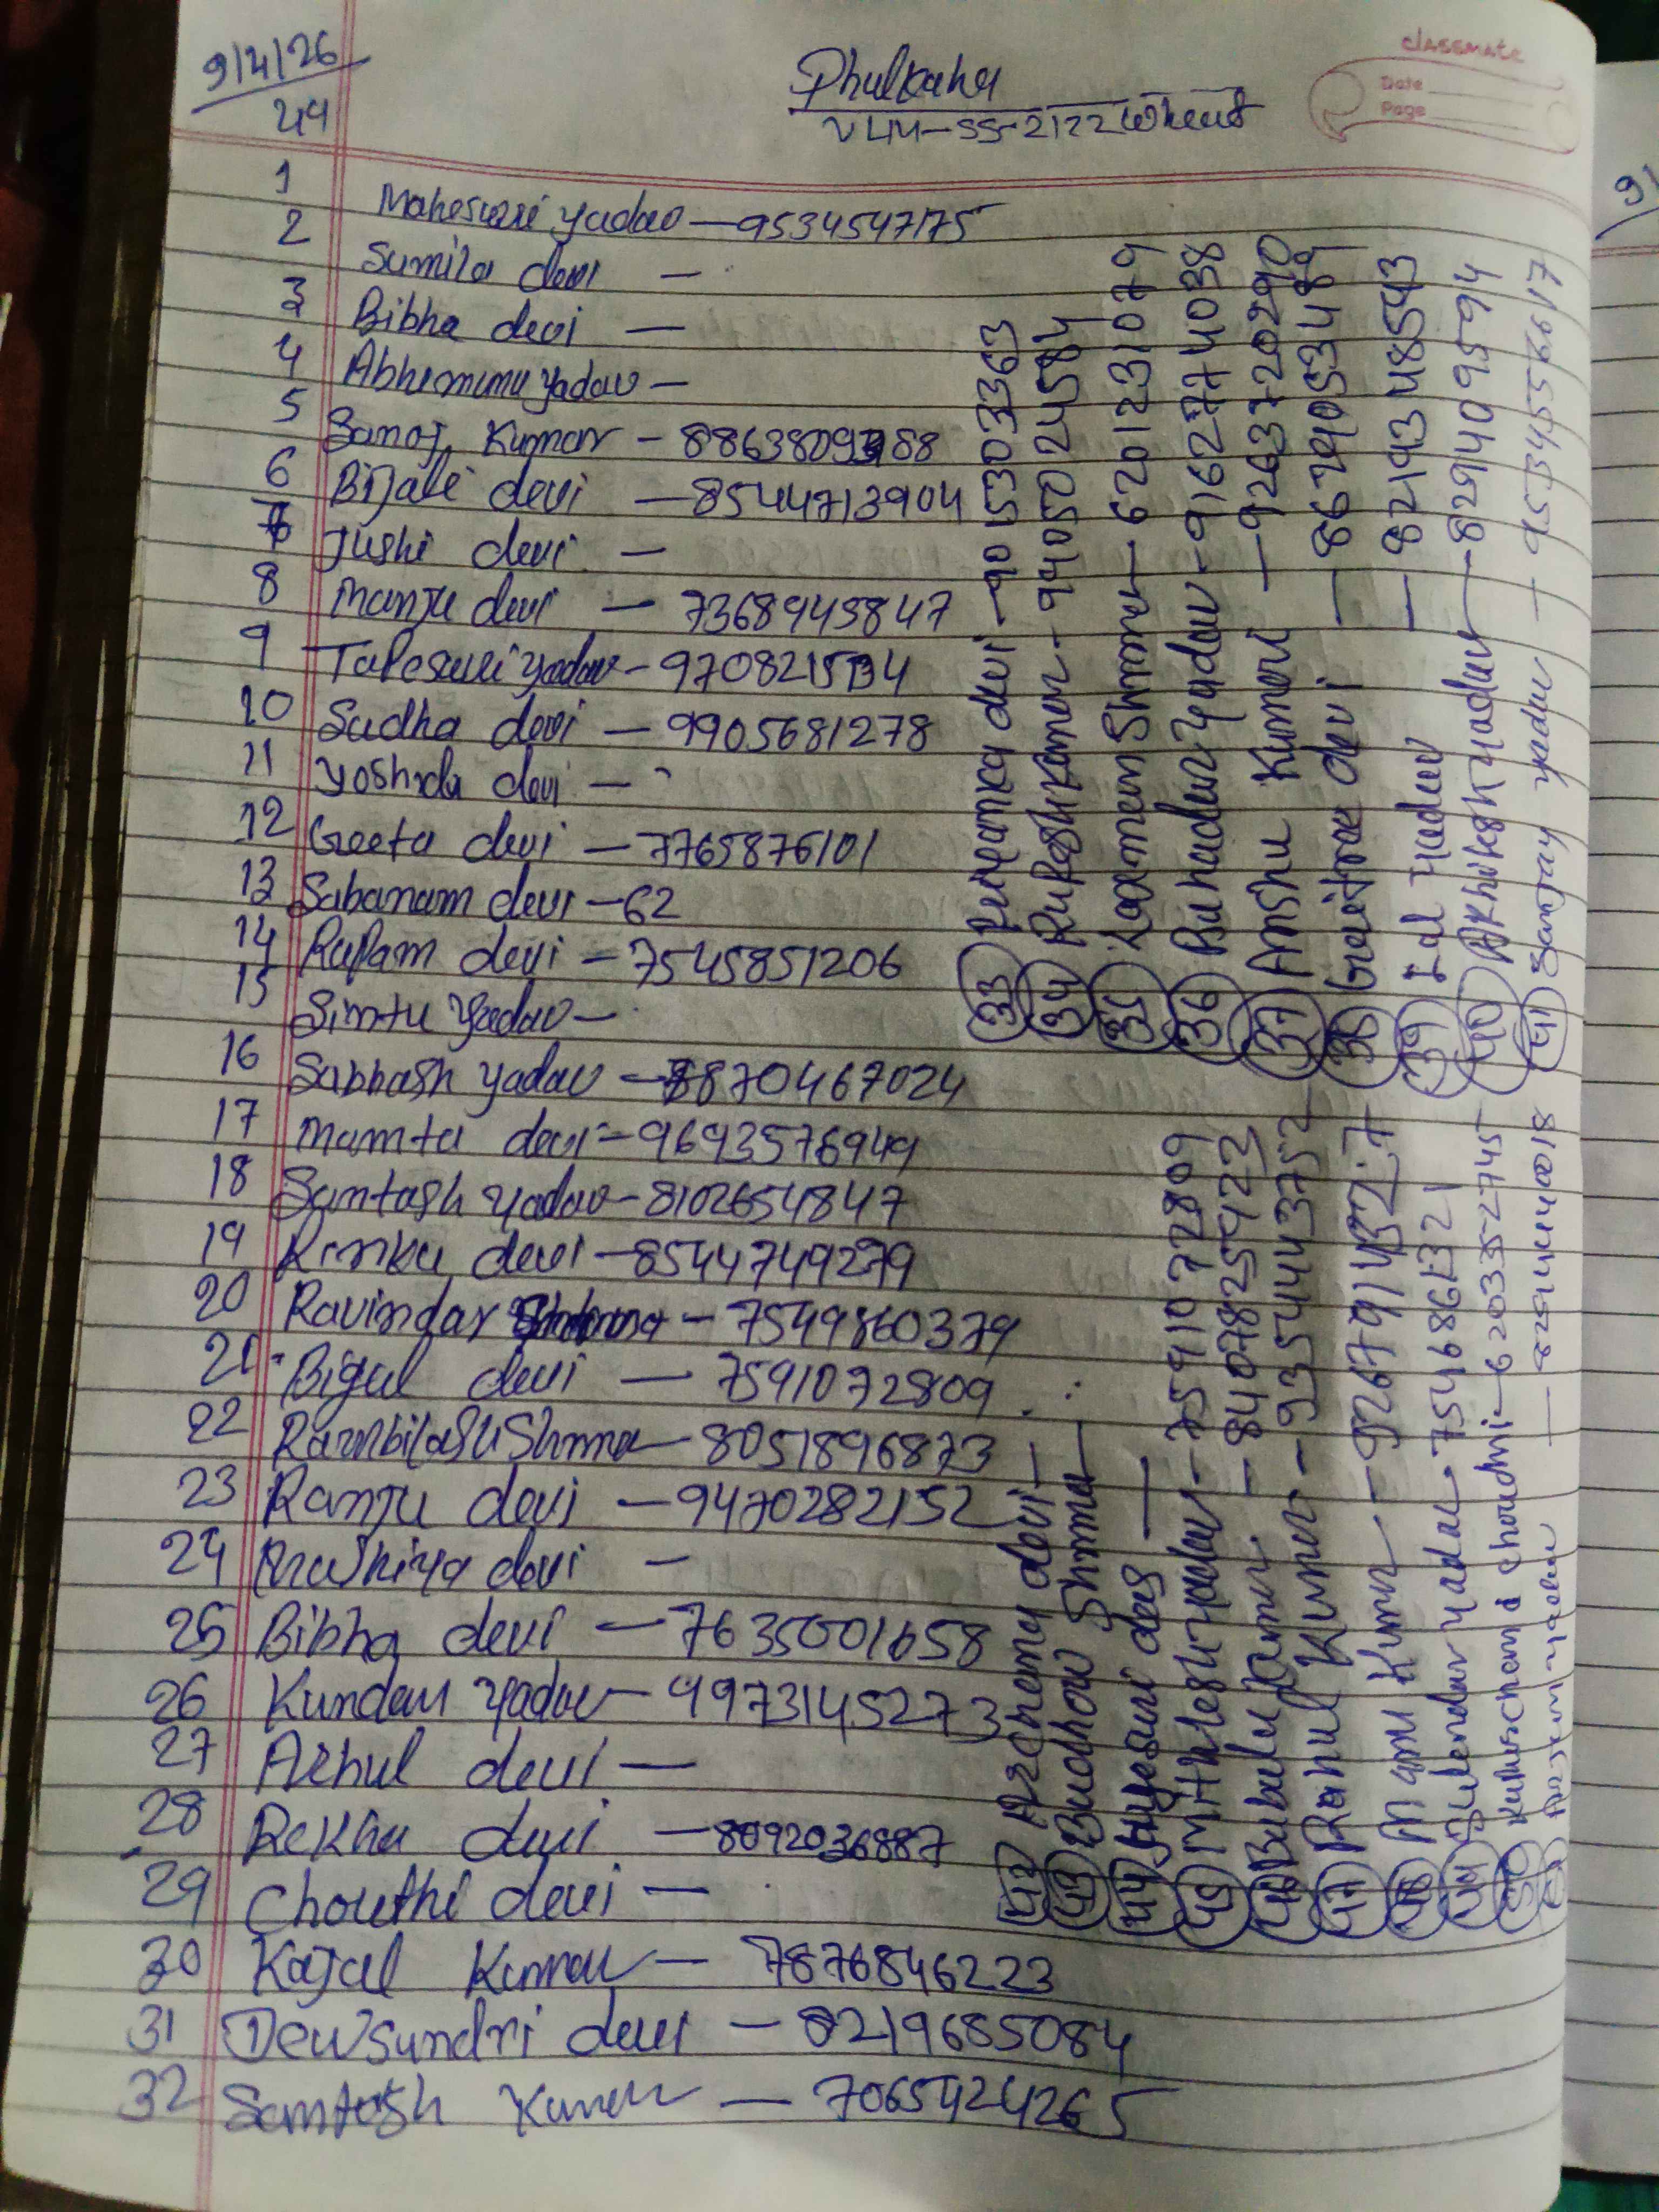 9/4/26
49
Phulkaha
VLM-SS-2122 Wheat
classmate
Date
Page
1 Maheswri yadav - 9534547175
2 Sumila devi -
3 Bibha devi -
4 Abhemunu yadav -
5 Sanoj Kumar -
6 Bijale devi - 8544713904
7 Jushi devi -
8 Manju devi - 7368945847
9 Taleswri yadav -
10 Sudha devi - 9905681278
11 yoshxda devi -
12 Geeta devi - 7765876101
13 Sabanam devi - 62
14 Rupam devi - 7545851206
15 Simtu yadav -
16 Sabhash yadav - 8870467024
17 Mamta devi - 9693576949
18 Santash yadav - 8102654847
19 Rinku devi - 8544749279
20 Ravindar - 7549860379
21 Bigul devi - 7591072809
22 Rambilash Shrma - 8051896873
23 Ranju devi - 9470282152
24 devi -
25 Bibha devi - 7635001658
26 Kundan yadav - 9973145273
27 Arhul devi -
28 Rekha devi - 8092036887
29 Chouthi devi -
30 Kajal Kumari - 7876846223
31 Dewsundri devi - 8219685084
32 Santosh Kumar - 7065424265
33 devi - 9015303363
34 Rupesh Kumar - 9405024584
35 Laxman Shrma - 6201231079
36 Buhadur yadav - 9162774038
37 Anshu Kumari - 9263720290
38 Gaeitrae devi - 8679053489
39 Lal yadav - 8219348543
40 Akhilesh yadav - 8294095594
41 Sanjay yadav - 9534556617
42 Archana devi -
43 Shrma -
44 das -
45 Mithlesh yadav - 7591072809
46 Bubulu Kumar - 8407825922
47 Rahul Kumar - 9354443752
48 Kumar -
49 yadav - 7546861321
50 choudhri - 6203352745
yadav - 8294440018